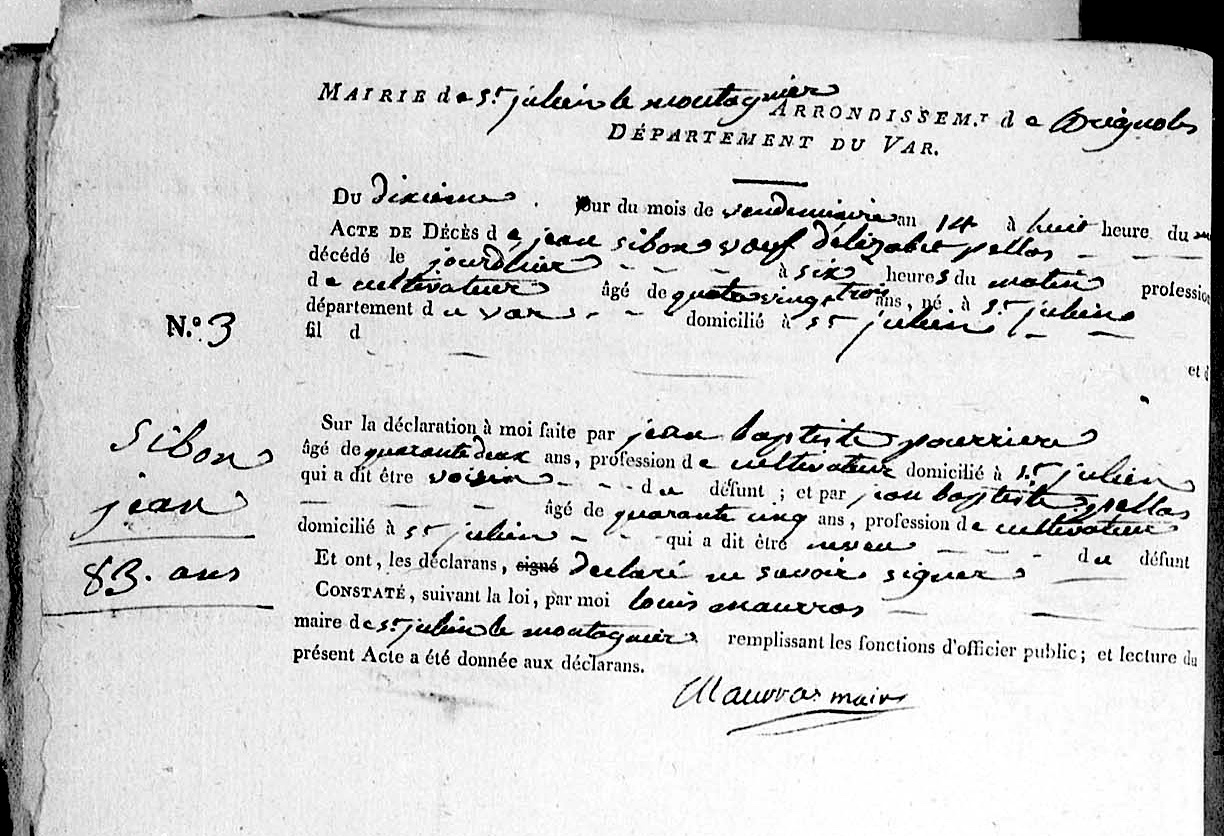 MAIRIE de St julien le montagnier ARRONDISSEM.T de Brignoles
DÉPARTEMENT DU VAR.
DU dixieme jour du mois de vendemiaire an 14 à huit heure du
ACTE DE DÉCÈS de jean sibon veuf d'élizabet pellas
décédé le jourdhier à six heures du matin profession
de cultivateur âgé de quatrevingt trois ans, né à St julien
département du var domicilié à St julien
N.º 3
fil d
et d
Sibon
jean
83. ans
Sur la déclaration à moi faite par jean baptiste pourriere
âgé de quarante deux ans, profession de cultivateur domicilié à St julien
qui a dit être voisin du défunt ; et par jean baptiste pellas
âgé de quarante cinq ans, profession de cultivateur
domicilié à St julien qui a dit être neveu du défunt
Et ont, les déclarans, signé declaré ne savoir signer
CONSTATÉ, suivant la loi, par moi louis maurras
maire de St julien le montagnier remplissant les fonctions d'officier public ; et lecture du
présent Acte a été donnée aux déclarans.
Maurras maire